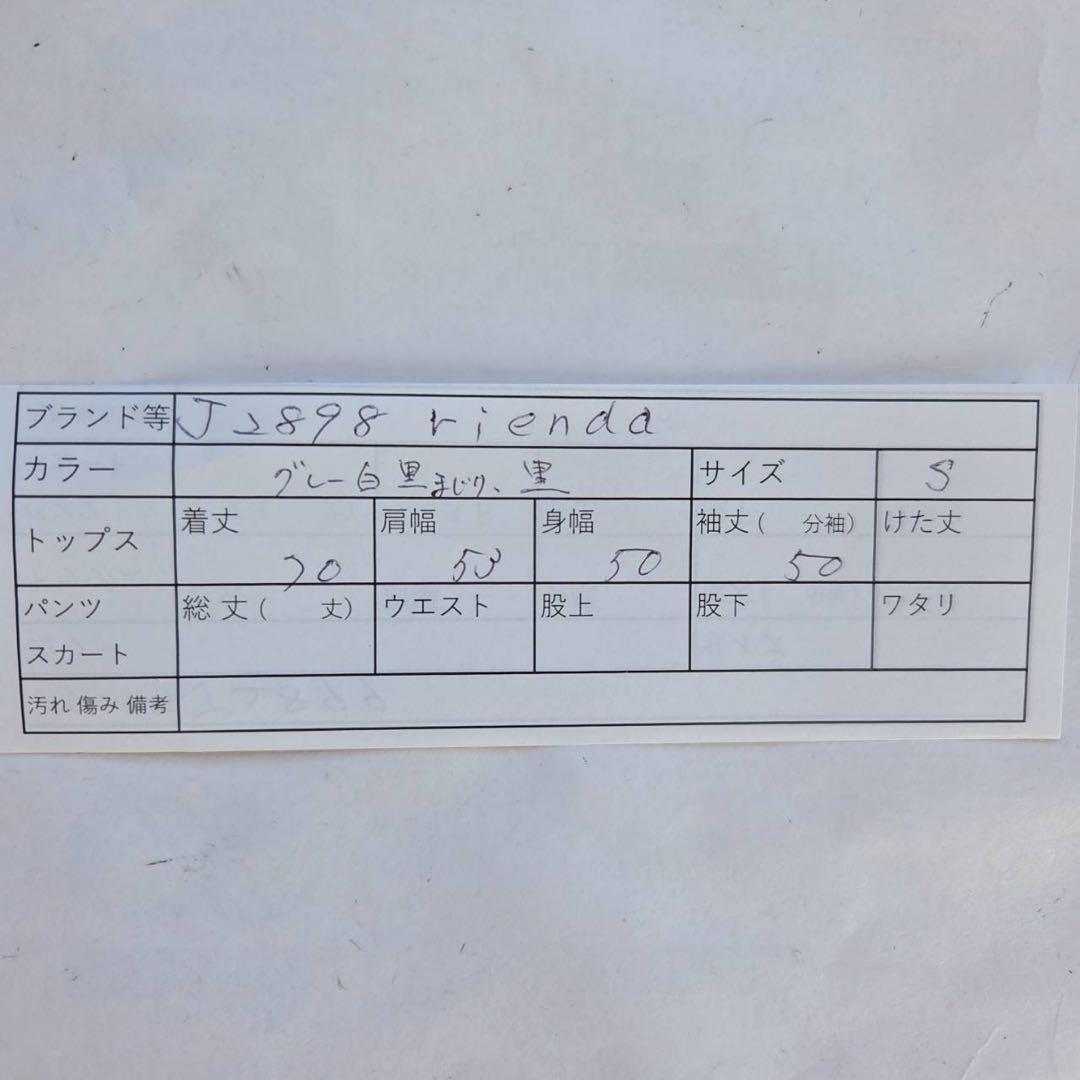 ブランド等 J2898 rienda
カラー グレー白黒まじり、黒 サイズ S
トップス 着丈 70 肩幅 53 身幅 50 袖丈( 分袖) 50 けた丈
パンツ 総丈( 丈) ウエスト 股上 股下 ワタリ
スカート
汚れ 傷み 備考